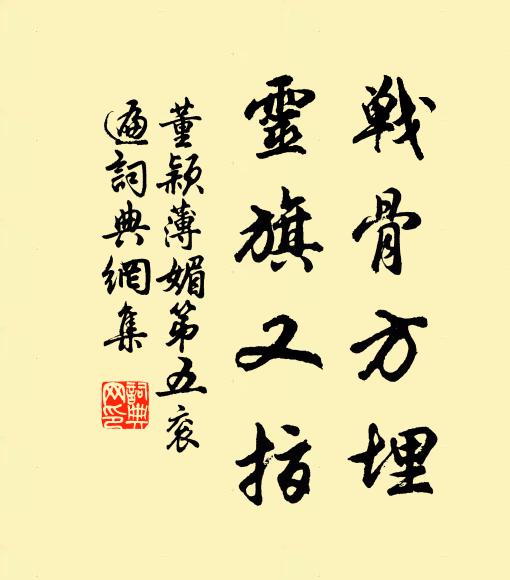 戰骨方埋
靈旗又指
董穎薄媚第五衮
遍詞典網集
詞典
网印